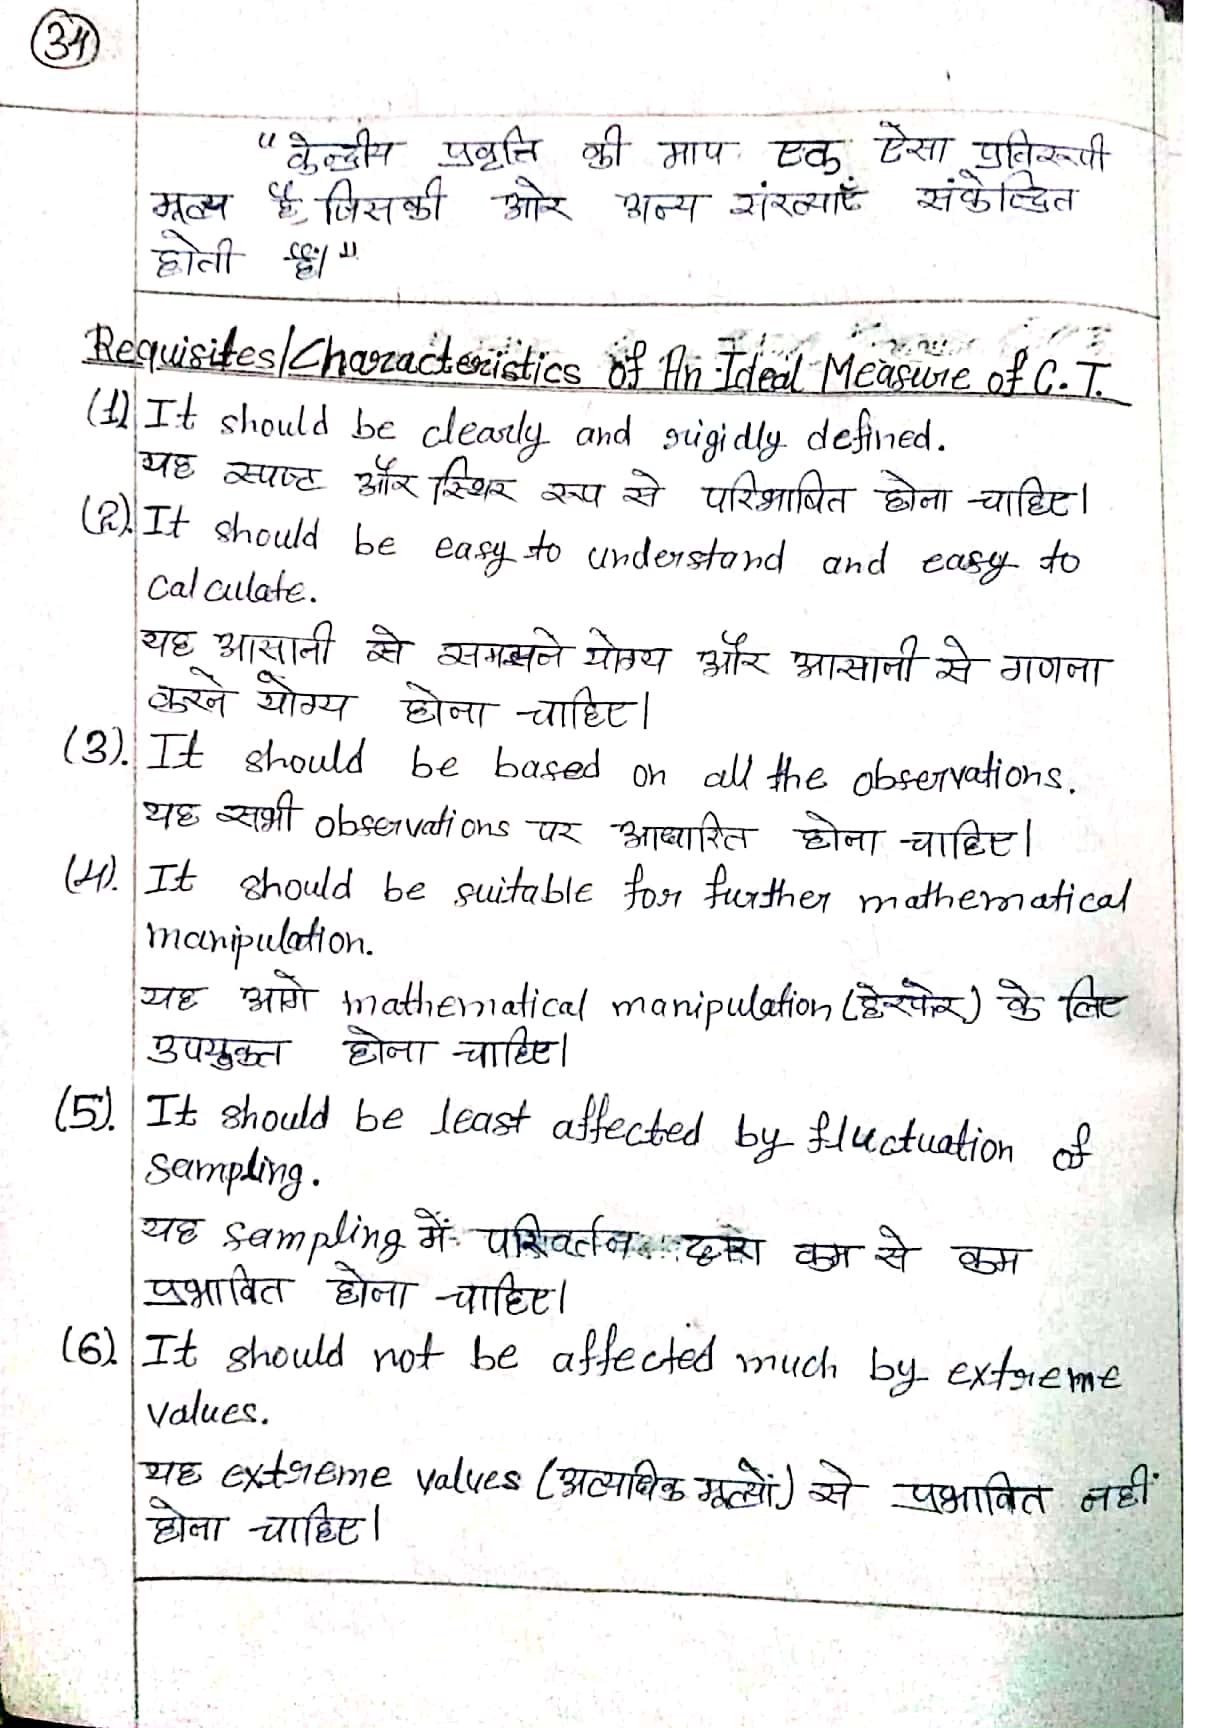 34
"केन्द्रीय प्रवृत्ति की माप एक ऐसा प्रतिरूपी
मूल्य है जिसकी ओर अन्य संख्याएँ संकेन्द्रित
होती हैं।"
Requisites/Characteristics of An Ideal Measure of C.T.
(1) It should be clearly and rigidly defined.
यह स्पष्ट और स्थिर रूप से परिभाषित होना चाहिए।
(2). It should be easy to understand and easy to
calculate.
यह आसानी से समझने योग्य और आसानी से गणना
करने योग्य होना चाहिए।
(3). It should be based on all the observations.
यह सभी observations पर आधारित होना चाहिए।
(4). It should be suitable for further mathematical
manipulation.
यह आगे mathematical manipulation (हेरफेर) के लिए
उपयुक्त होना चाहिए।
(5). It should be least affected by fluctuation of
sampling.
यह sampling में परिवर्तन द्वारा कम से कम
प्रभावित होना चाहिए।
(6). It should not be affected much by extreme
values.
यह extreme values (अत्यधिक मूल्यों) से प्रभावित नहीं
होना चाहिए।